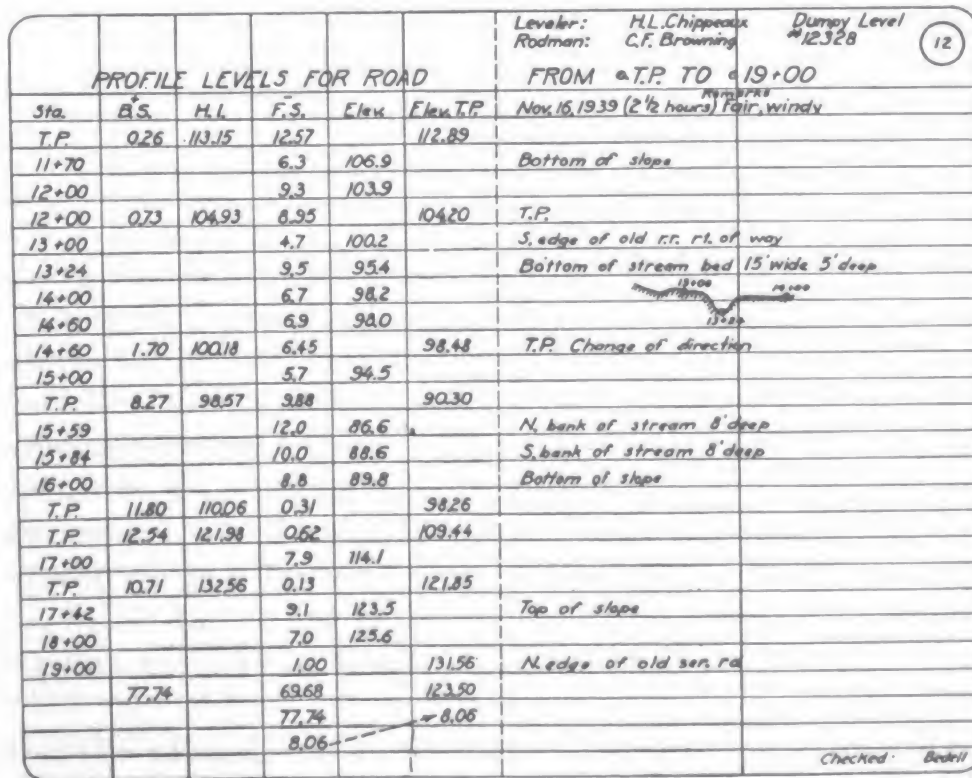 Leveler: H.L. Chippeaux Dumpy Level
Rodman: C.F. Browning #12328 12
PROFILE LEVELS FOR ROAD FROM a T.P. TO a 19+00
Remarks
Sta. B.S. + H.I. F.S. - Elev. Elev. T.P. Nov. 16, 1939 (2 1/2 hours) Fair, windy
T.P. 0.26 113.15 12.57 112.89
11+70 6.3 106.9 Bottom of slope
12+00 9.3 103.9
12+00 0.73 104.93 8.95 104.20 T.P.
13+00 4.7 100.2 S. edge of old r.r. rt. of way
13+24 9.5 95.4 Bottom of stream bed 15' wide 5' deep
14+00 6.7 98.2 13+00 14+00
14+60 6.9 98.0 13+24
14+60 1.70 100.18 6.45 98.48 T.P. Change of direction
15+00 5.7 94.5
T.P. 8.27 98.57 9.88 90.30
15+59 12.0 86.6 N. bank of stream 8' deep
15+84 10.0 88.6 S. bank of stream 8' deep
16+00 8.8 89.8 Bottom of slope
T.P. 11.80 110.06 0.31 98.26
T.P. 12.54 121.98 0.62 109.44
17+00 7.9 114.1
T.P. 10.71 132.56 0.13 121.85
17+42 9.1 123.5 Top of slope
18+00 7.0 125.6
19+00 1.00 131.56 N. edge of old ser. rd
77.74 69.68 123.50
77.74 8.06
8.06
Checked: Bedell